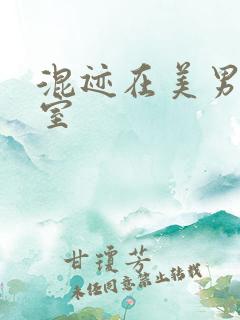 混迹在美男
室
甘琼芳
未经同意禁止转载